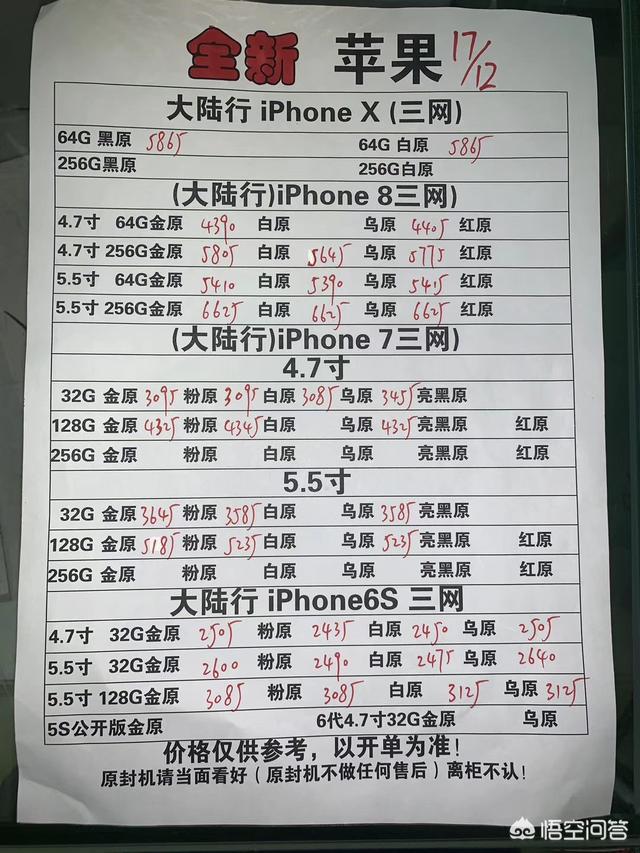 全新 苹果 17/12
大陆行 iPhone X (三网)
64G 黑原 5865 64G 白原 5865
256G黑原 256G白原
(大陆行)iPhone 8三网)
4.7寸 64G金原 4390 白原 乌原 4405 红原
4.7寸 256G金原 5805 白原 5645 乌原 5775 红原
5.5寸 64G金原 5410 白原 5390 乌原 5415 红原
5.5寸 256G金原 6625 白原 6625 乌原 6625 红原
(大陆行)iPhone 7三网)
4.7寸
32G 金原 3095 粉原 3095 白原 3085 乌原 3455 亮黑原
128G 金原 4325 粉原 4345 白原 乌原 4325 亮黑原 红原
256G 金原 粉原 白原 乌原 亮黑原 红原
5.5寸
32G 金原 3645 粉原 3585 白原 乌原 3585 亮黑原
128G 金原 5185 粉原 5235 白原 乌原 5235 亮黑原 红原
256G 金原 粉原 白原 乌原 亮黑原 红原
大陆行 iPhone6S 三网
4.7寸 32G金原 2505 粉原 2435 白原 2450 乌原 2505
5.5寸 32G金原 2600 粉原 2490 白原 2475 乌原 2640
5.5寸 128G金原 3085 粉原 3085 白原 3125 乌原 3125
5S公开版金原 6代4.7寸32G金原 乌原
价格仅供参考，以开单为准！
原封机请当面看好（原封机不做任何售后）离柜不认！
悟空问答